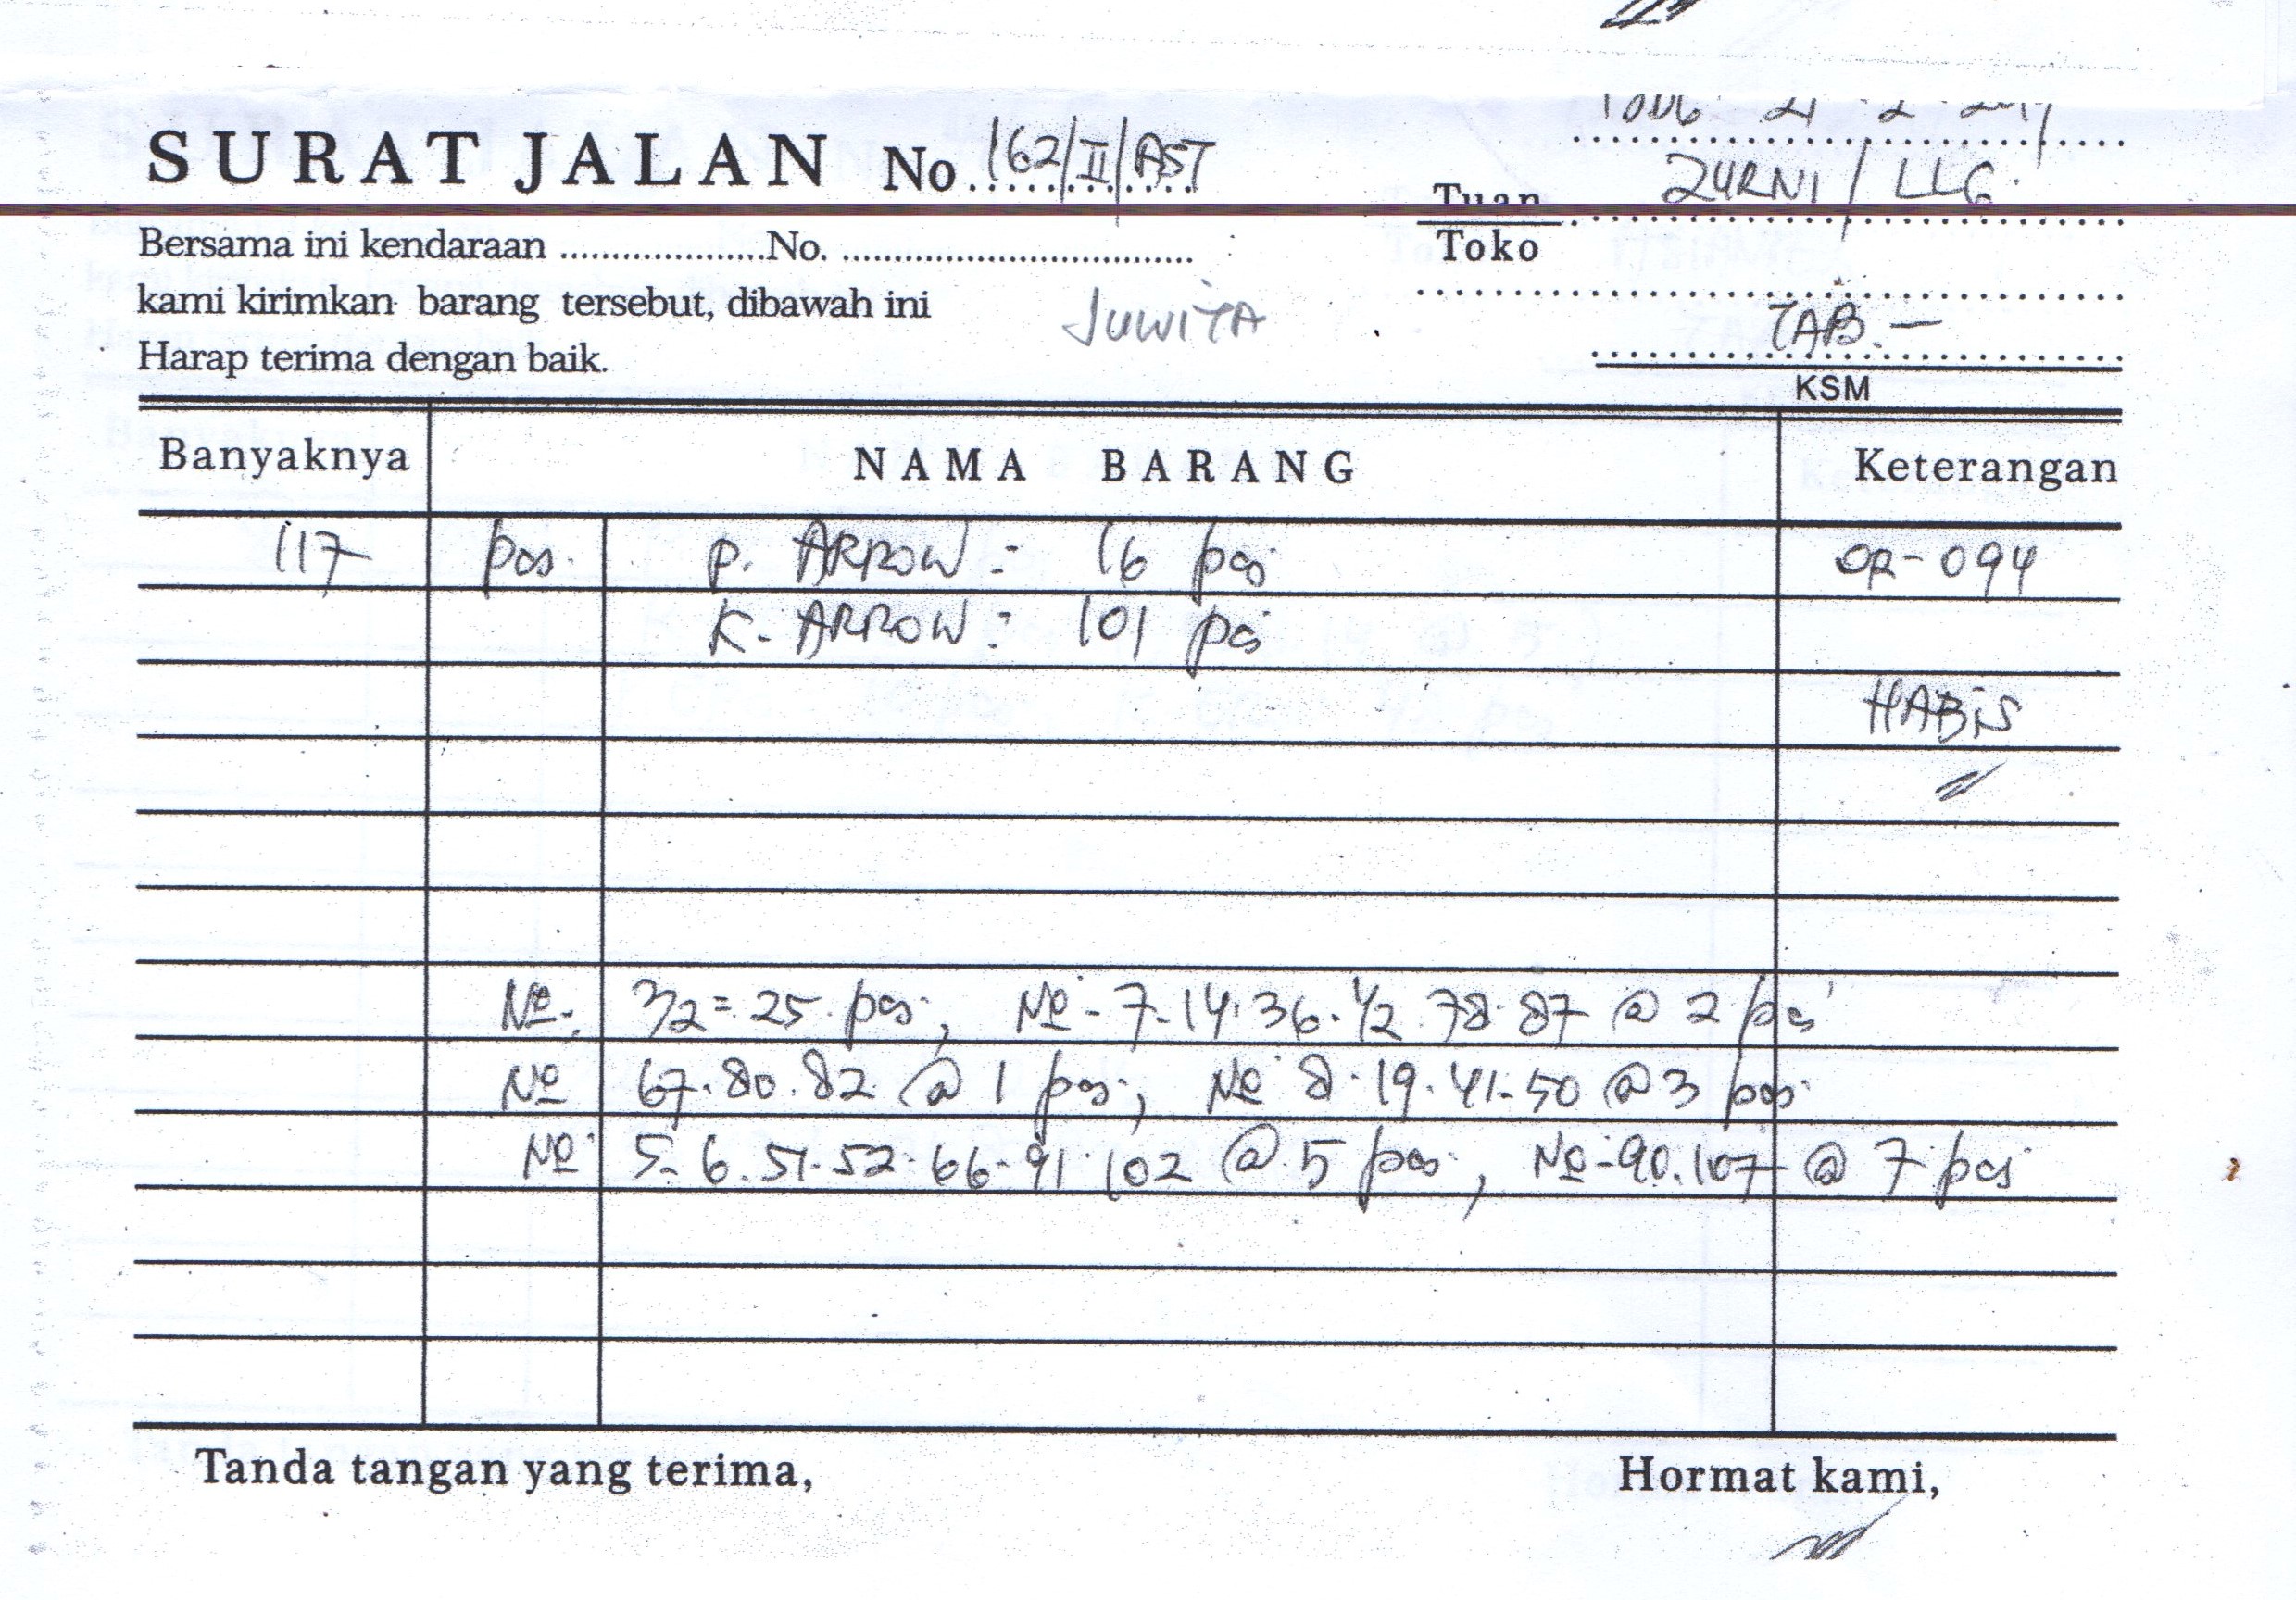 SURAT JALAN No. 162/II/AST
21 · 2 ·
Tuan ZURNI / LLG.
Toko
Bersama ini kendaraan ....................No. ..................................
kami kirimkan barang tersebut, dibawah ini JUWITA
TAB. —
Harap terima dengan baik.
KSM
Banyaknya NAMA BARANG Keterangan
117 pcs. P. ARROW : 16 pcs OR-094
K. ARROW : 101 pcs
HABIS
No. 3/2 = 25 pcs, No - 7.14.36.1/2.78.87 @ 2 pcs
No 67.80.82 @ 1 pcs, No 8.19.41.50 @ 3 pcs
No 5.6.51.52.66.91.102 @ 5 pcs, No - 90.107 @ 7 pcs
Tanda tangan yang terima, Hormat kami,